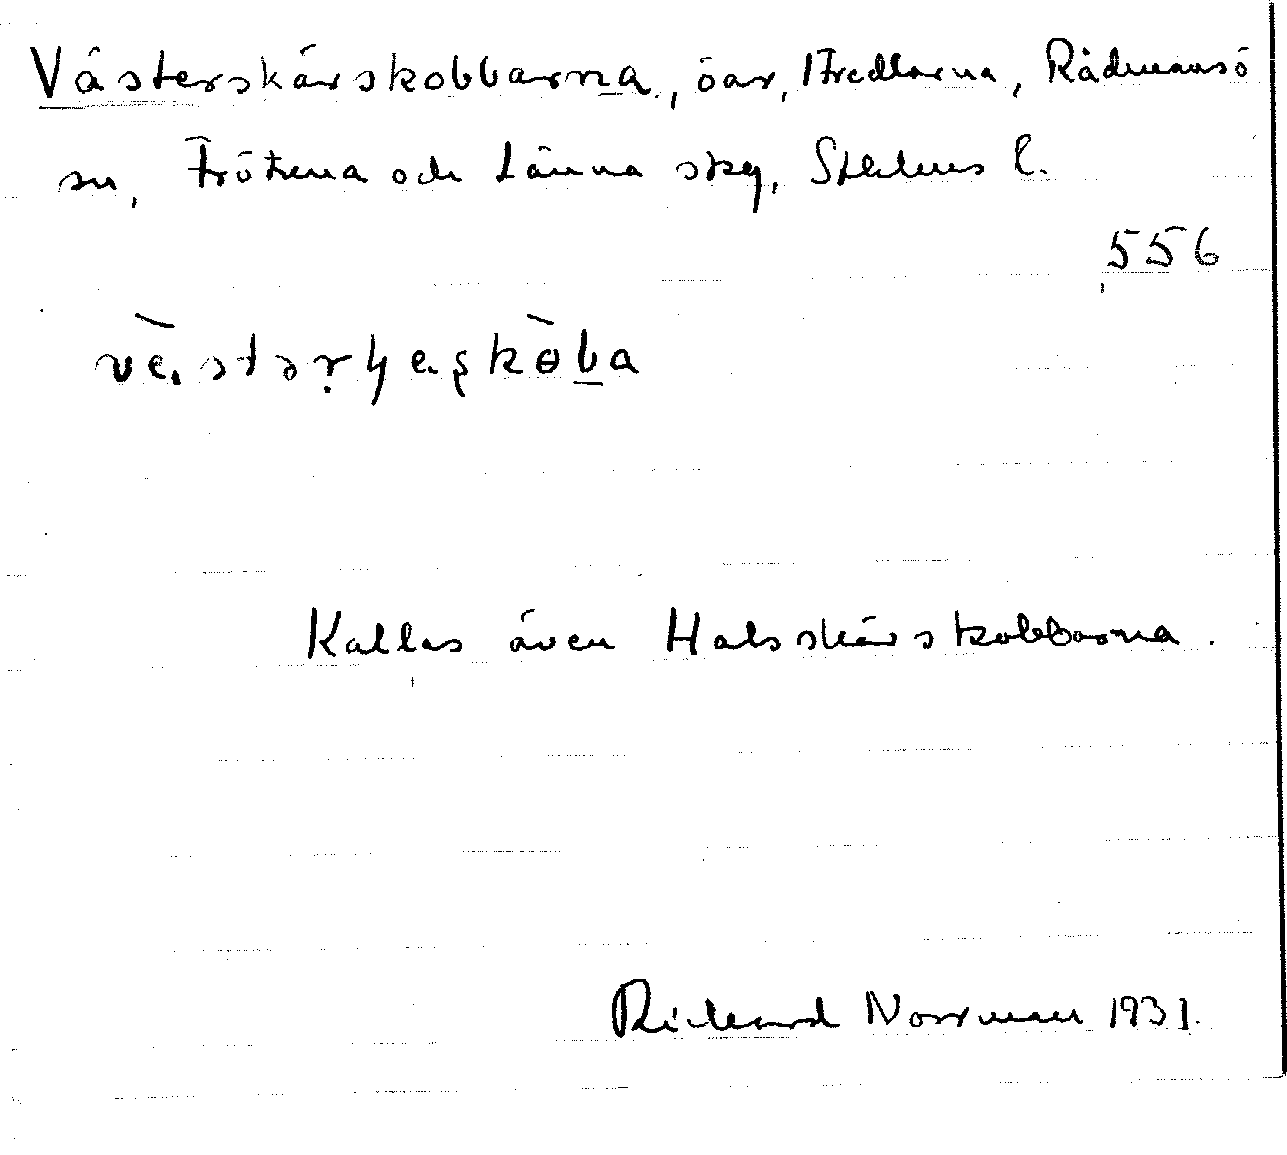 Västerskärskobbarna, öar, Fredlarna, Rådmansö
sn, Frötuna och Länna skg, Sthlms l.
556
Kallas även Halsskärskobbarna.
Rickard Norrman 1931.